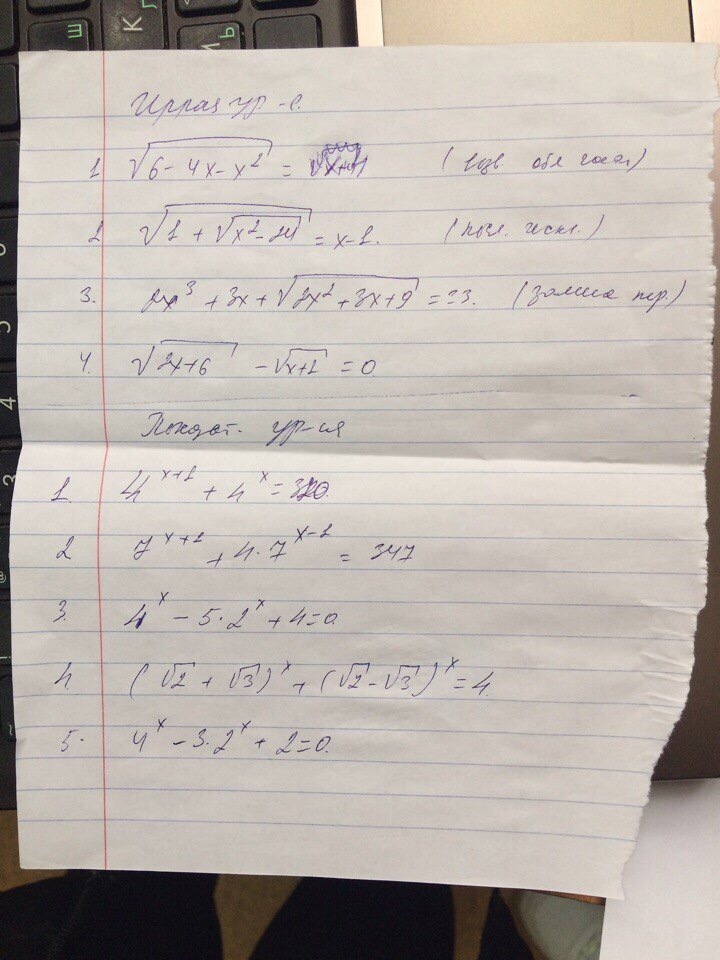 Иррац ур-е.
1 √(6 - 4x - x²) = x+4
2 √(1 + √(x² - 24)) = x-1.
3. 2x³ + 3x + √(2x² + 3x + 9) = 33. (замена пер.)
4. √(2x+6) - √(x+1) = 0
Показат. ур-ия
1. 4^(x+1) + 4^x = 320.
2 7^(x+1) + 4·7^(x-1) = 347
3. 4^x - 5·2^x + 4 = 0
4. (√2 + √3)^x + (√2 - √3)^x = 4.
5. 4^x - 3·2^x + 2 = 0.